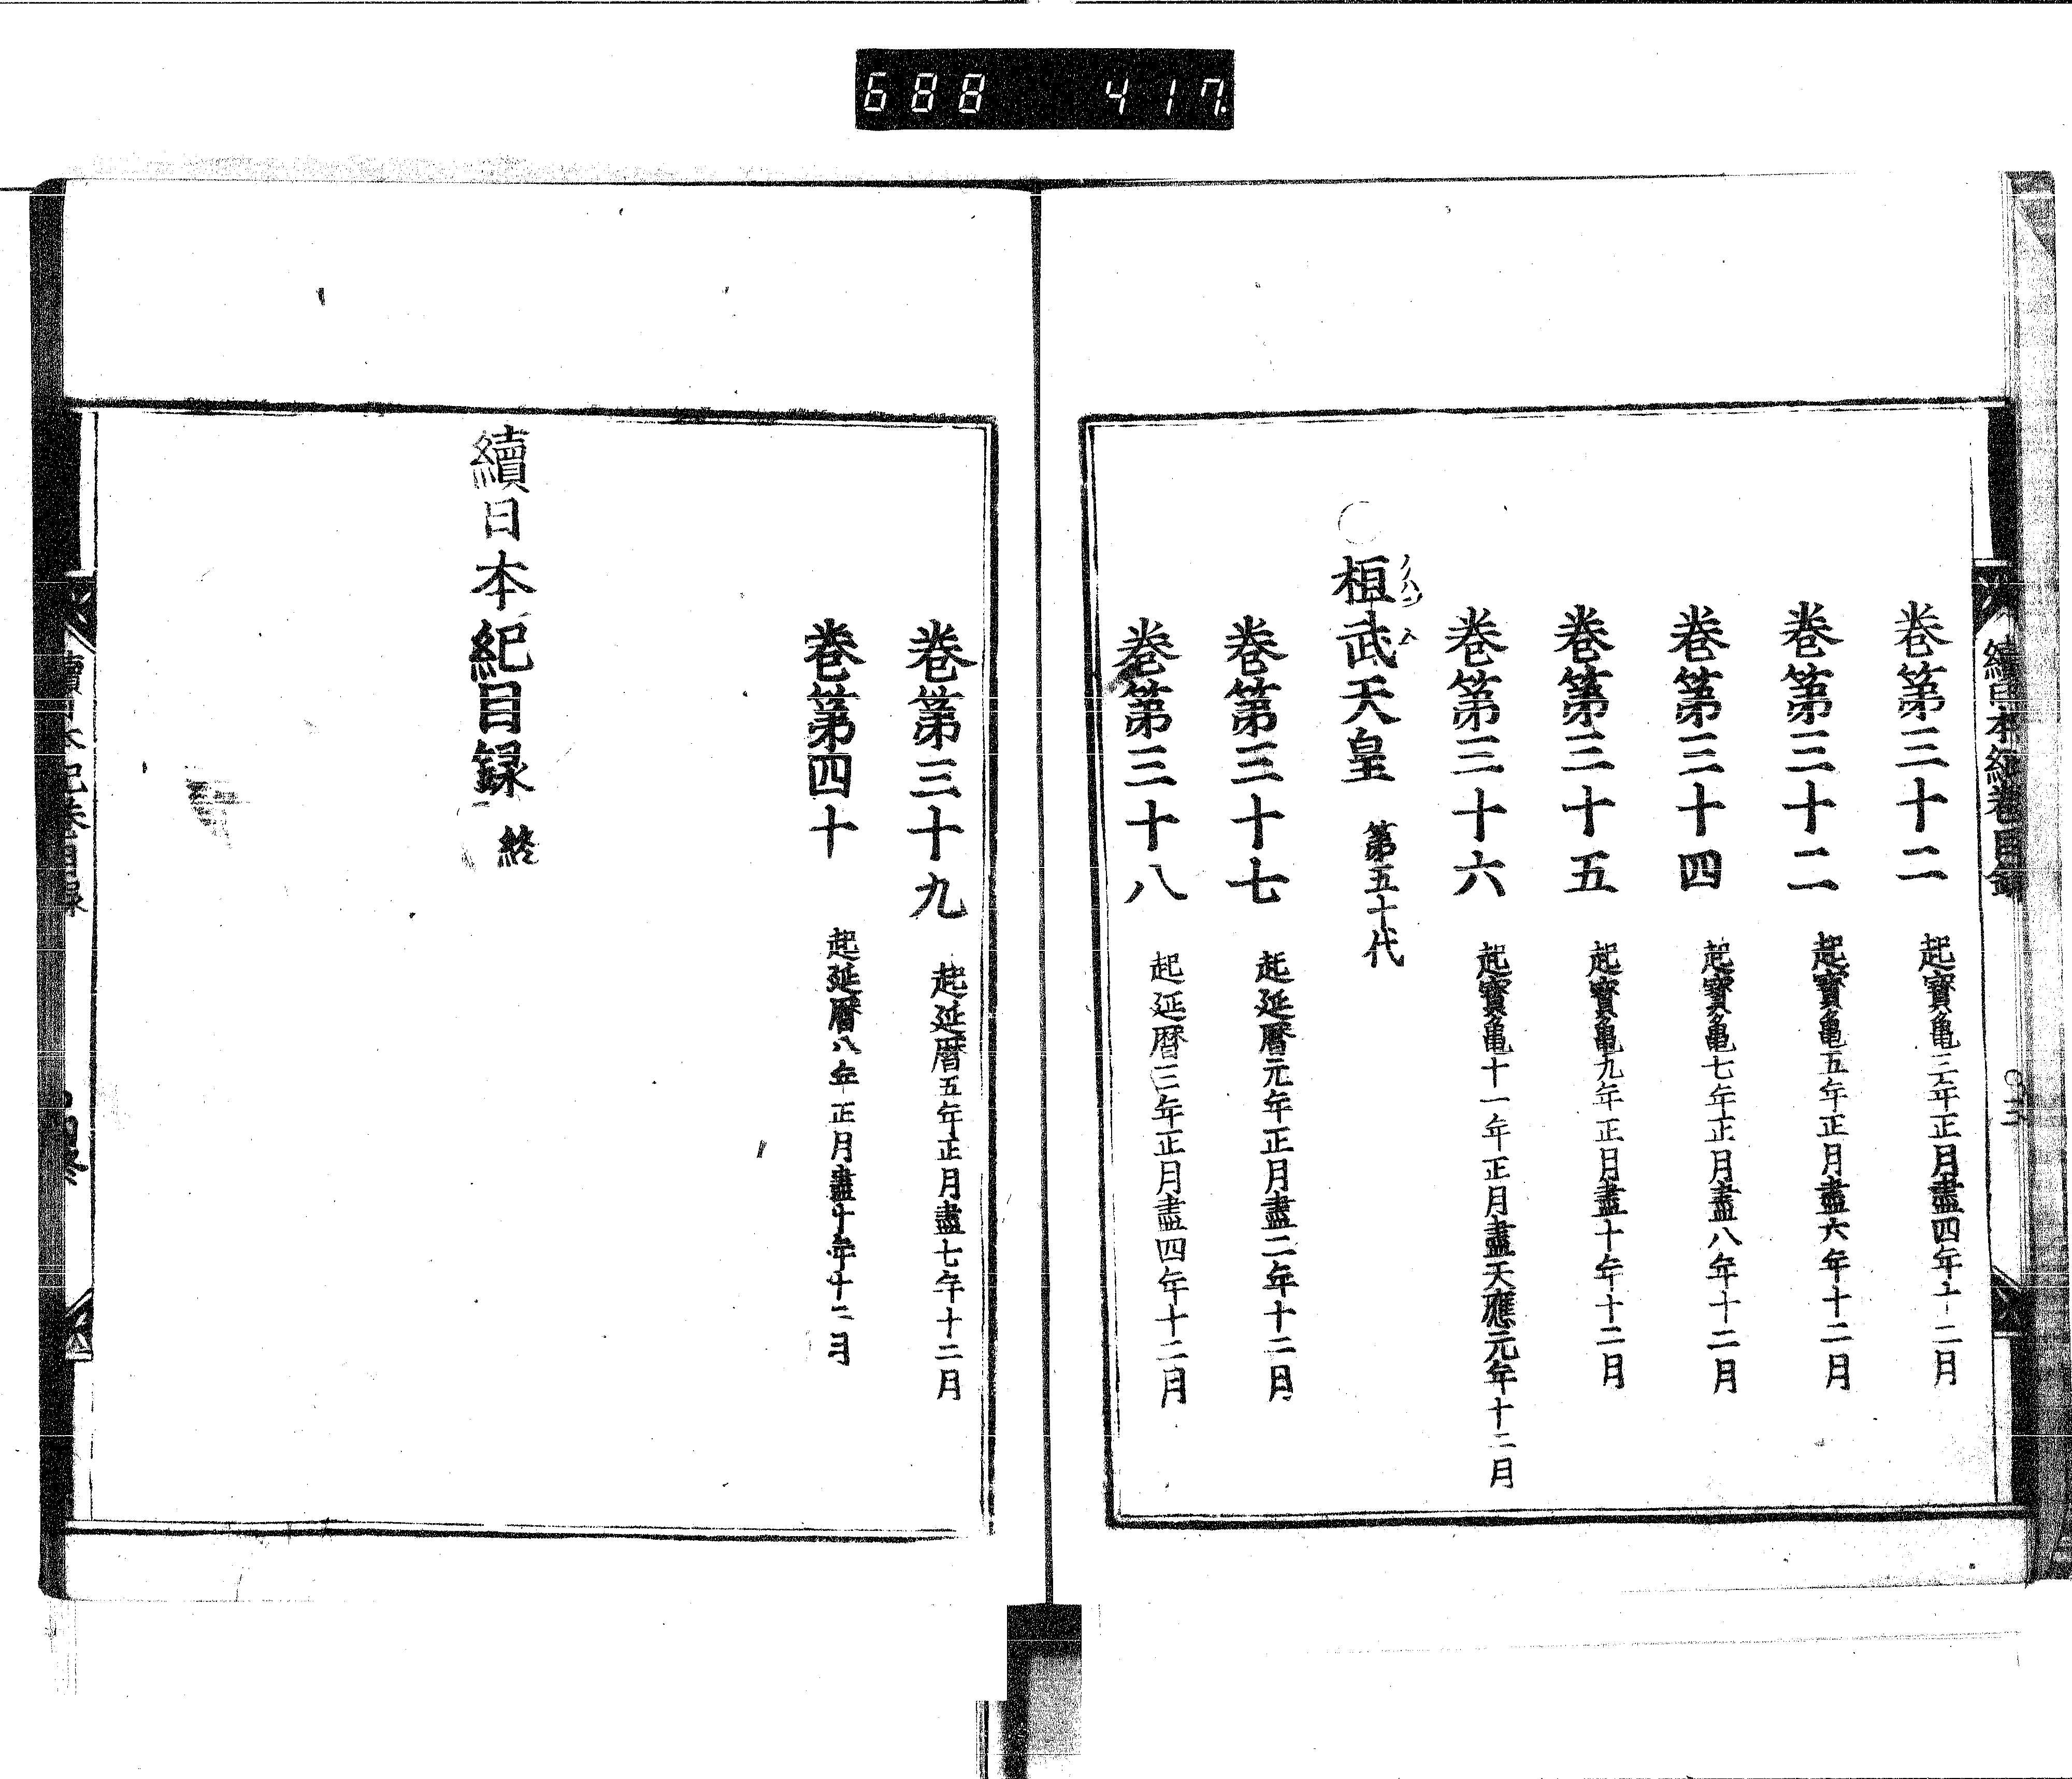 688 417
續日本紀卷目錄 ○三
卷第三十二 起寶亀三年正月盡四年十二月
卷第三十二 起寶亀五年正月盡六年十二月
卷第三十四 起寶亀七年正月盡八年十二月
卷第三十五 起寶亀九年正月盡十年十二月
卷第三十六 起寶亀十一年正月盡天應元年十二月
○桓武天皇 第五十代
卷第三十七 起延暦元年正月盡二年十二月
卷第三十八 起延暦三年正月盡四年十二月
卷第三十九 起延暦五年正月盡七年十二月
卷第四十 起延暦八年正月盡十年十二月
續日本紀目録 終